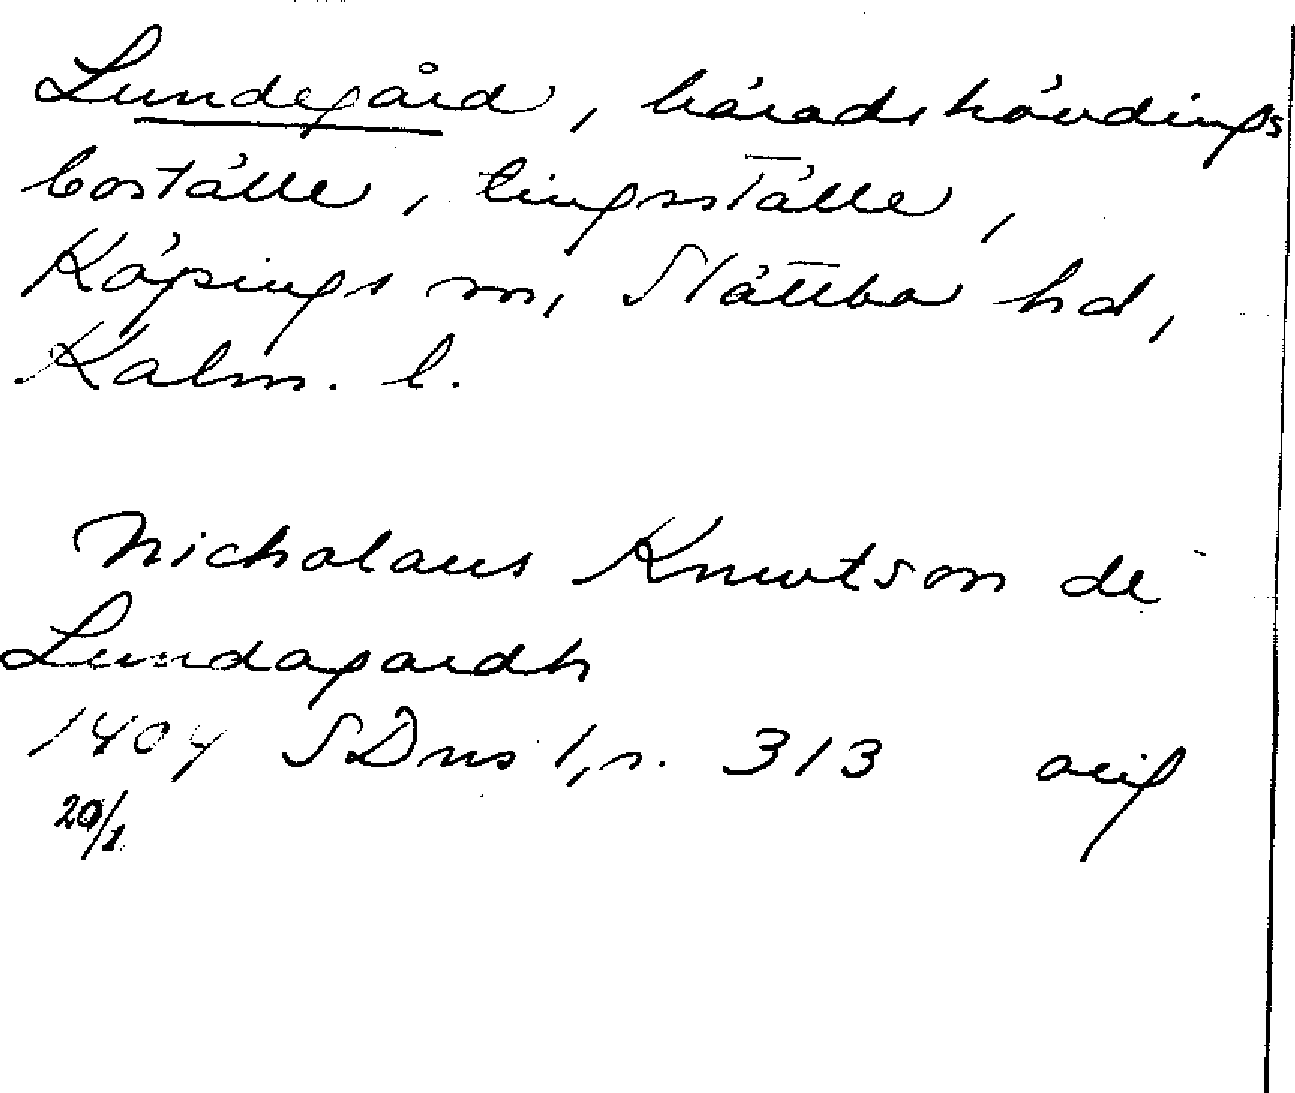 Lundegård, häradshövdings
boställe, tingsställe,
Köpings sn, Slättbo hd,
Kalm. l.
Nicholaus Knwtson de
Lundagardh
1404 SDns 1, s. 313 orig
20/1